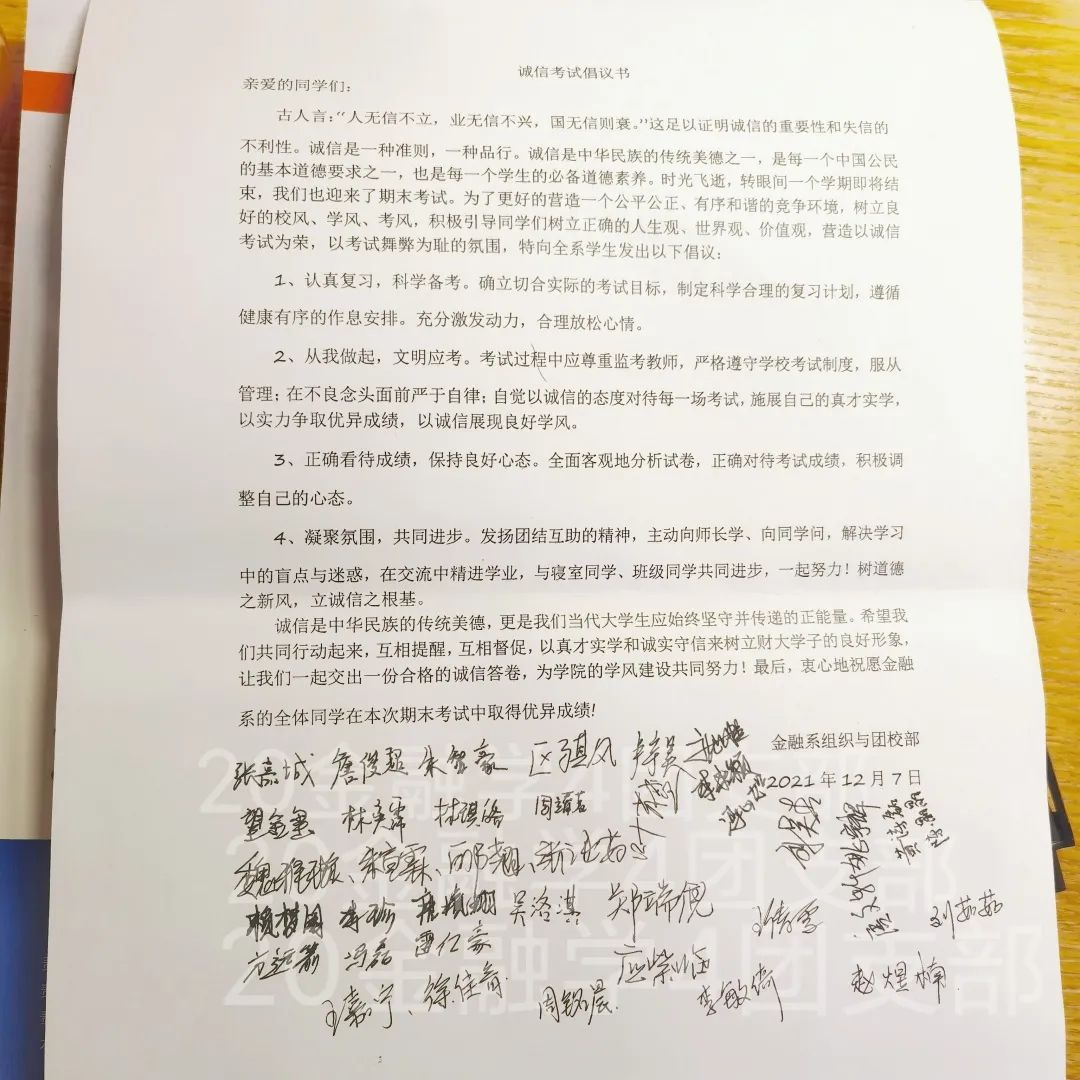 诚信考试倡议书
亲爱的同学们：
古人言：“人无信不立，业无信不兴，国无信则衰。”这足以证明诚信的重要性和失信的
不利性。诚信是一种准则，一种品行。诚信是中华民族的传统美德之一，是每一个中国公民
的基本道德要求之一，也是每一个学生的必备道德素养。时光飞逝，转眼间一个学期即将结
束，我们也迎来了期末考试。为了更好的营造一个公平公正、有序和谐的竞争环境，树立良
好的校风、学风、考风，积极引导同学们树立正确的人生观、世界观、价值观，营造以诚信
考试为荣，以考试舞弊为耻的氛围，特向全系学生发出以下倡议：
1、认真复习，科学备考。确立切合实际的考试目标，制定科学合理的复习计划，遵循
健康有序的作息安排。充分激发动力，合理放松心情。
2、从我做起，文明应考。考试过程中应尊重监考教师，严格遵守学校考试制度，服从
管理；在不良念头面前严于自律；自觉以诚信的态度对待每一场考试，施展自己的真才实学，
以实力争取优异成绩，以诚信展现良好学风。
3、正确看待成绩，保持良好心态。全面客观地分析试卷，正确对待考试成绩，积极调
整自己的心态。
4、凝聚氛围，共同进步。发扬团结互助的精神，主动向师长学、向同学问，解决学习
中的盲点与迷惑，在交流中精进学业，与寝室同学、班级同学共同进步，一起努力！树道德
之新风，立诚信之根基。
诚信是中华民族的传统美德，更是我们当代大学生应始终坚守并传递的正能量。希望我
们共同行动起来，互相提醒，互相督促，以真才实学和诚实守信来树立财大学子的良好形象，
让我们一起交出一份合格的诚信答卷，为学院的学风建设共同努力！最后，衷心地祝愿金融
系的全体同学在本次期末考试中取得优异成绩!
金融系组织与团校部
2021年12月7日
张嘉城 詹俊超 朱智豪 区骐风
林奕霈 林祺洛
吴洛淇 郑瑞倪 刘茹茹
方运前 冯磊 雷仁豪
王嘉宁、徐佳奇 周铭晨 李敏倩 赵煜楠
20金融学4团支部
20金融学4团支部
20金融学4团支部